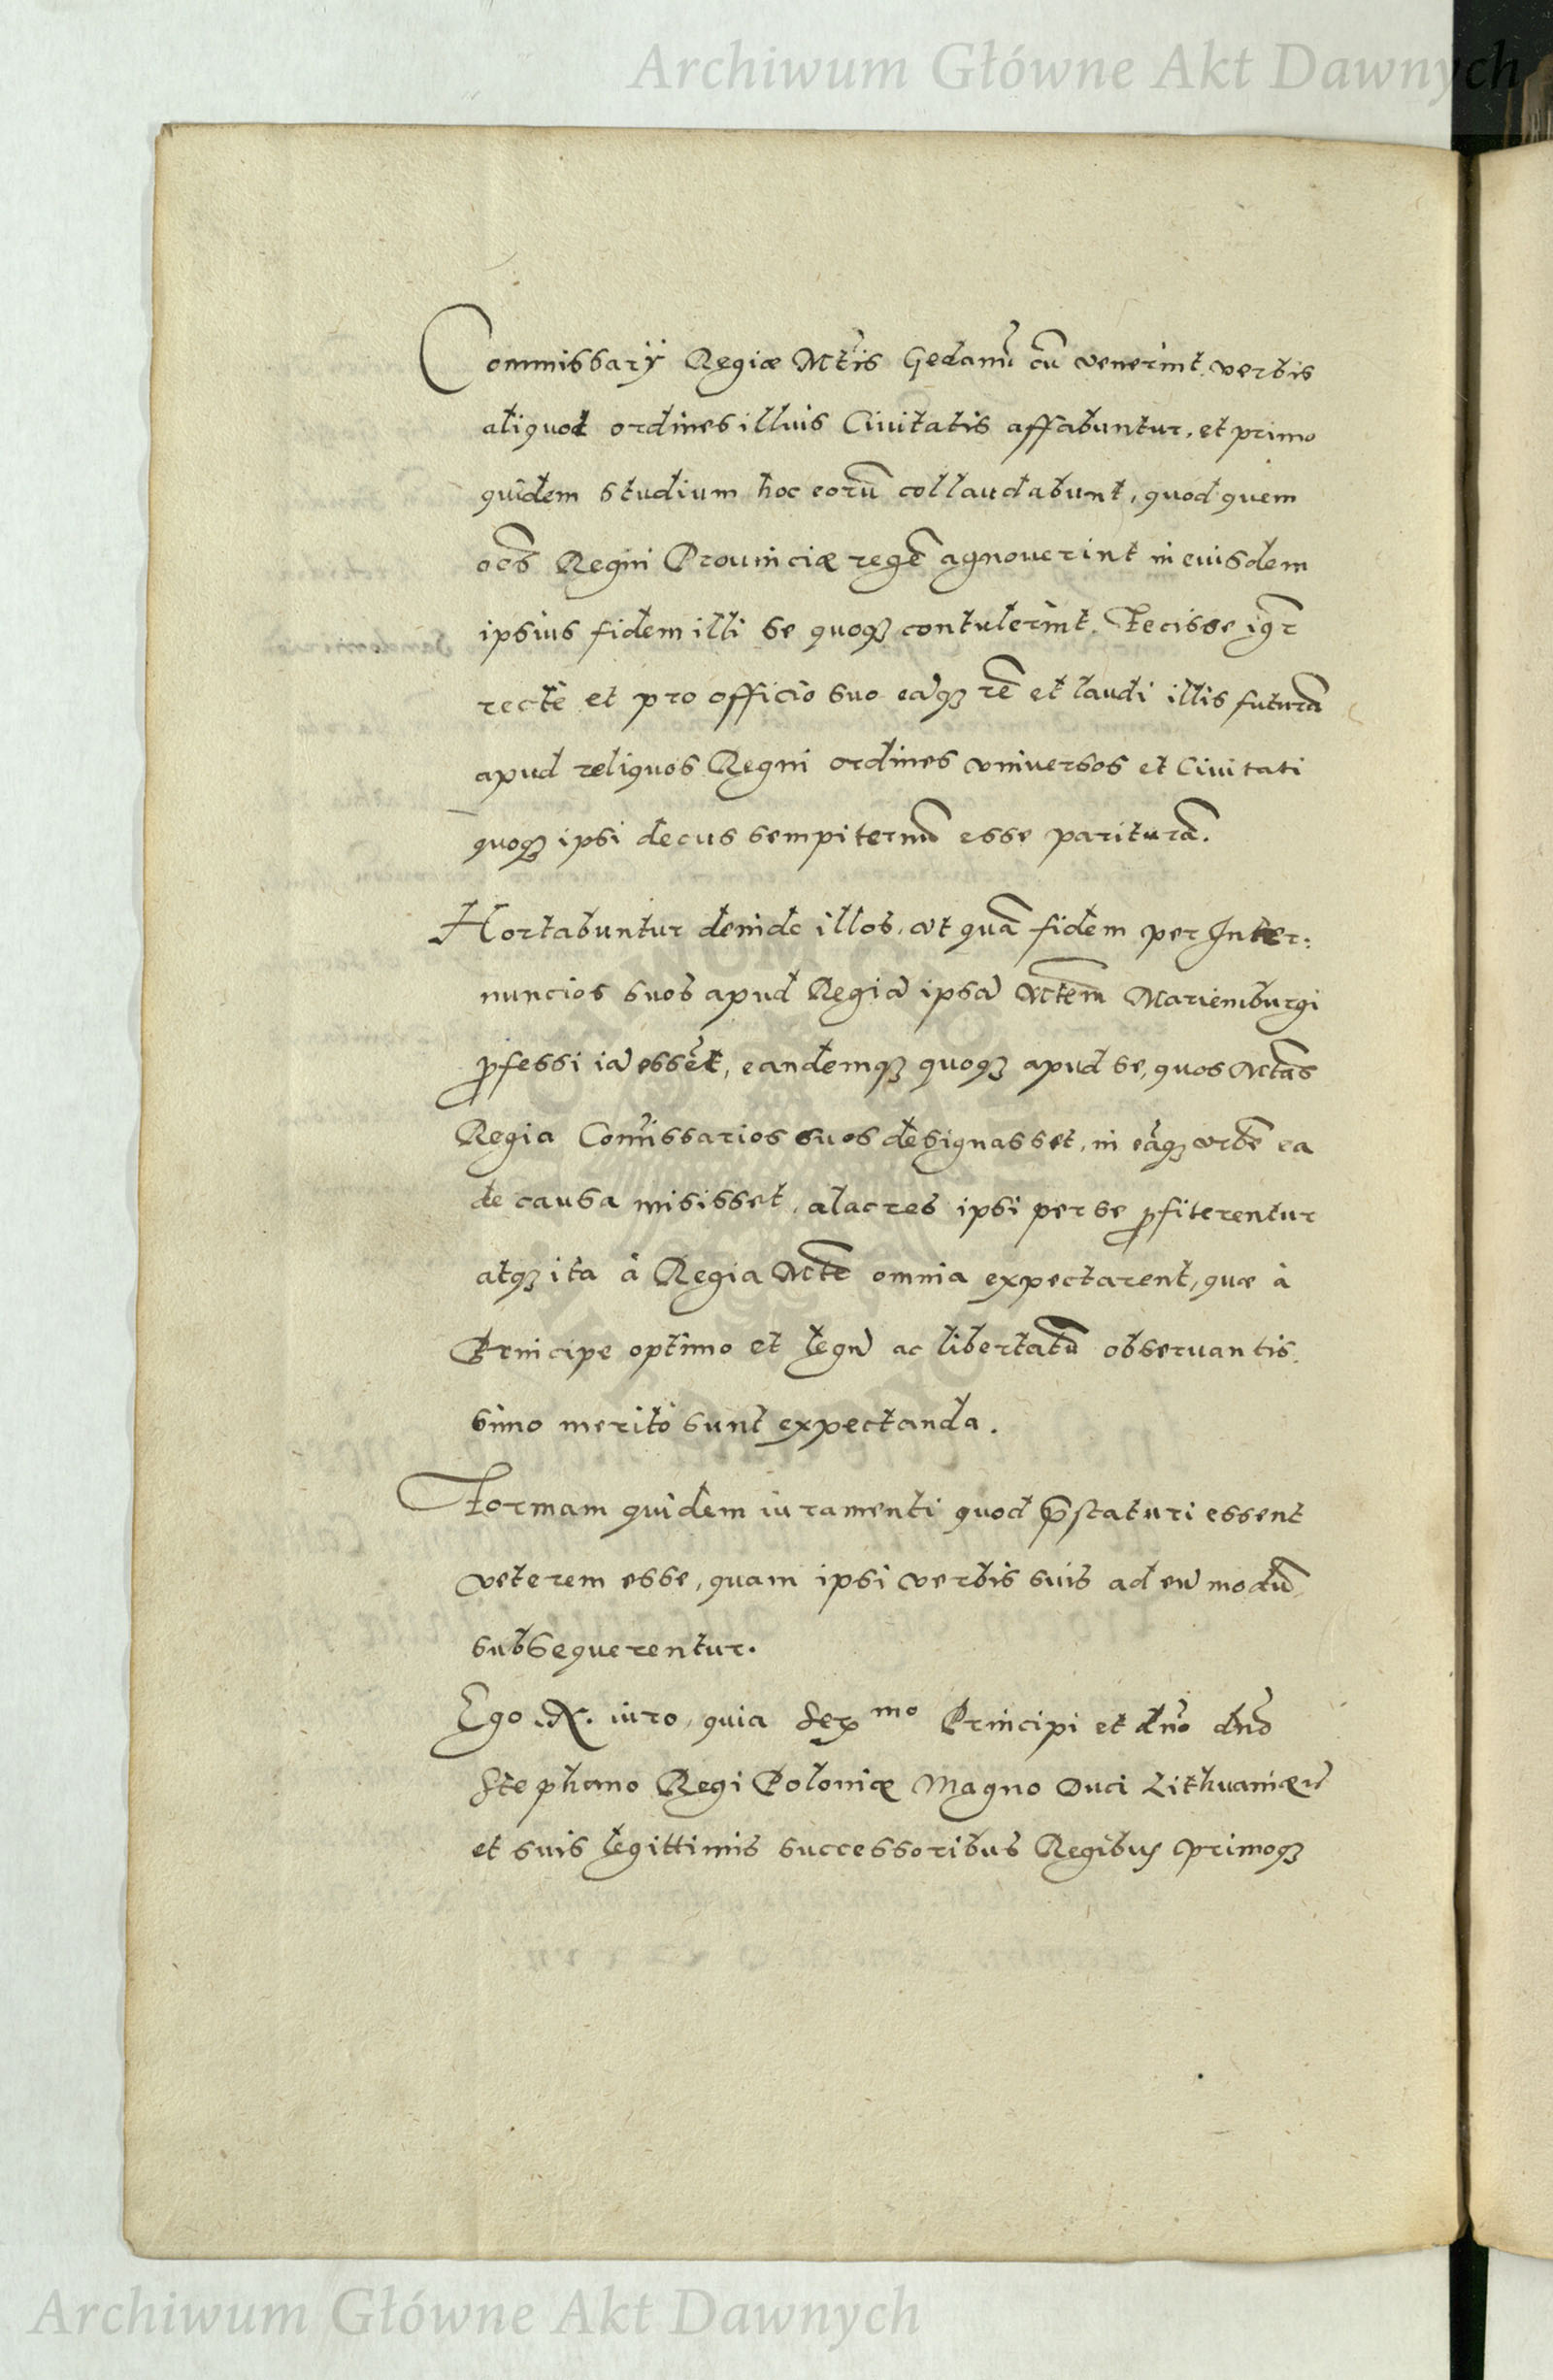 Archiwum Główne Akt Dawnych
Commissarÿ Regiæ Mtis Gedanū cū venerint, verbis
aliquot ordines illius Civitatis affabuntur, et primo
quidem studium hoc eorū collaudabunt, quod quem
oēs Regni Prouinciæ regē agnouerint in eiusdem
ipsius fidem illi se quoqꝫ contulerint. Fecisse igr̄
rectè et pro officio suo eāqꝫ rē et laudi illis futurā
apud reliquos Regni ordines vniversos et Civitati
quoqꝫ ipsi decus sempiternū esse pariturā.
Hortabuntur deinde illos, vt quā fidem per Inter:
nuncios suos apud Regiā ipsā Mtem Mariemburgi
ꝓfessi iā essēt, eandemqꝫ quoqꝫ apud se, quos Mtas
Regia Comissarios suos designasset, in eāqꝫ vrbē ea
de causa misisset, alacres ipsi per se ꝓfiterentur
atqꝫ ita à Regia Mte omnia expectarent, quæ à
Principe optimo et legū ac libertatū obseruantis.
simo meritò sunt expectanda.
Formam quidem iuramenti quod p̄staturi essent
veterem esse, quam ipsi verbis suis ad eū modū
subsequerentur.
Ego .N. iuro, quia Ser mo Principi et dn̄o dn̄o
Stephano Regi Poloniæ Magno Duci Lithuaniæ
et suis legittimis successoribus Regibus primoqꝫ
Archiwum Główne Akt Dawnych